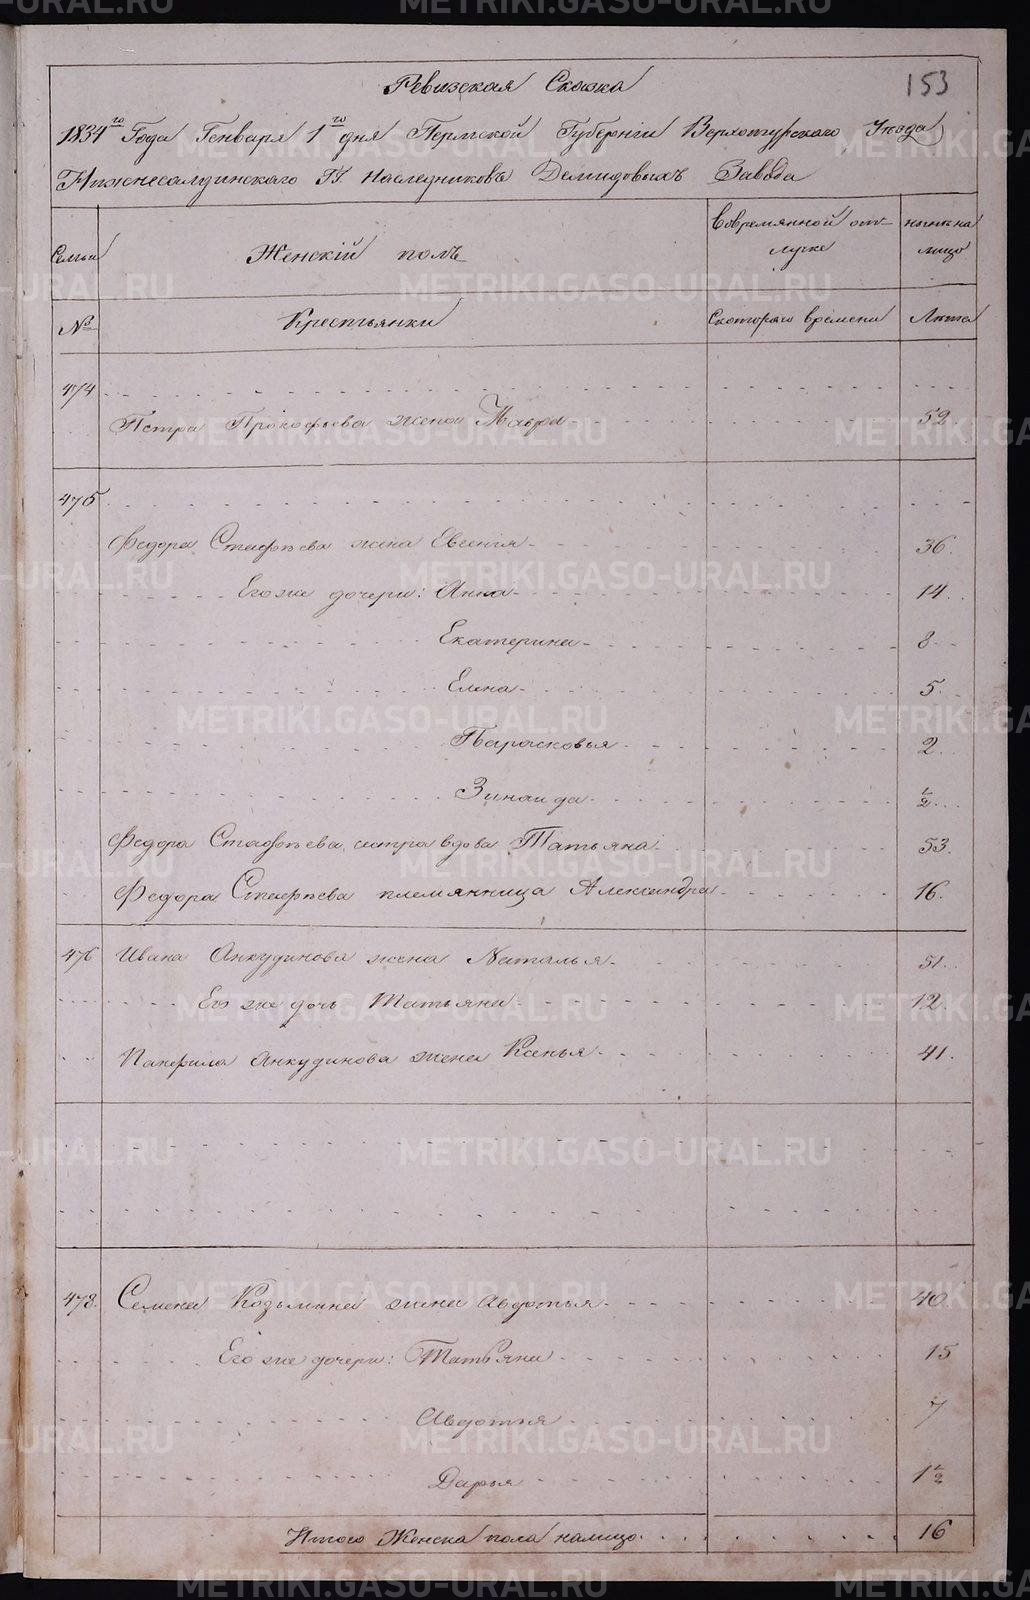 153
Ревизская Сказка
1834го Года Генваря 1го дня Пермской Губерніи Верхотурскаго Уезда
Нижнесалдинскаго ГГ. наследниковъ Демидовыхъ Завода
Семьи
Женскій полъ
Вовремянной отлучке
ныне на лицо
№
Крестьянки
Скотораго времени
Лета
474
Петра Прокофьева жена Мавра 52
475
Федора Стафеева жена Евгенія 36
Его же дочери: Анна 14
Екатерина 8
Елена 5
Парасковья 2
Зинаида 1/2
Федора Стафеева сестра вдова Татьяна 53
Федора Стафеева племянница Александра 16
476 Ивана Анкудинова жена Наталья 51
Его же дочь Татьяна 12
Панфила Анкудинова жена Ксенья 41
478 Семена Козьмина жена Авдотья 40
Его же дочери: Татьяна 15
Авдотья 7
Дарья 1 1/2
Итого Женска пола налицо 16
METRIKI.GASO-URAL.RU